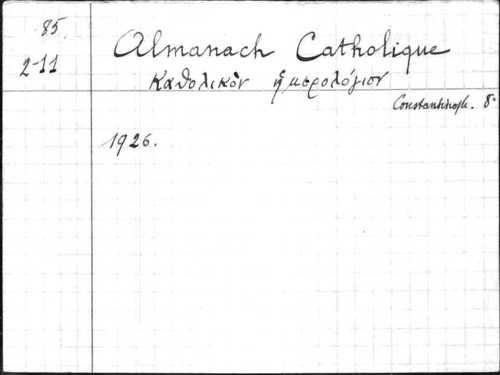 85.
2-11
Almanach Catholique
Καθολικὸν ἡμερολόγιον
Constantinople. 8°
1926.